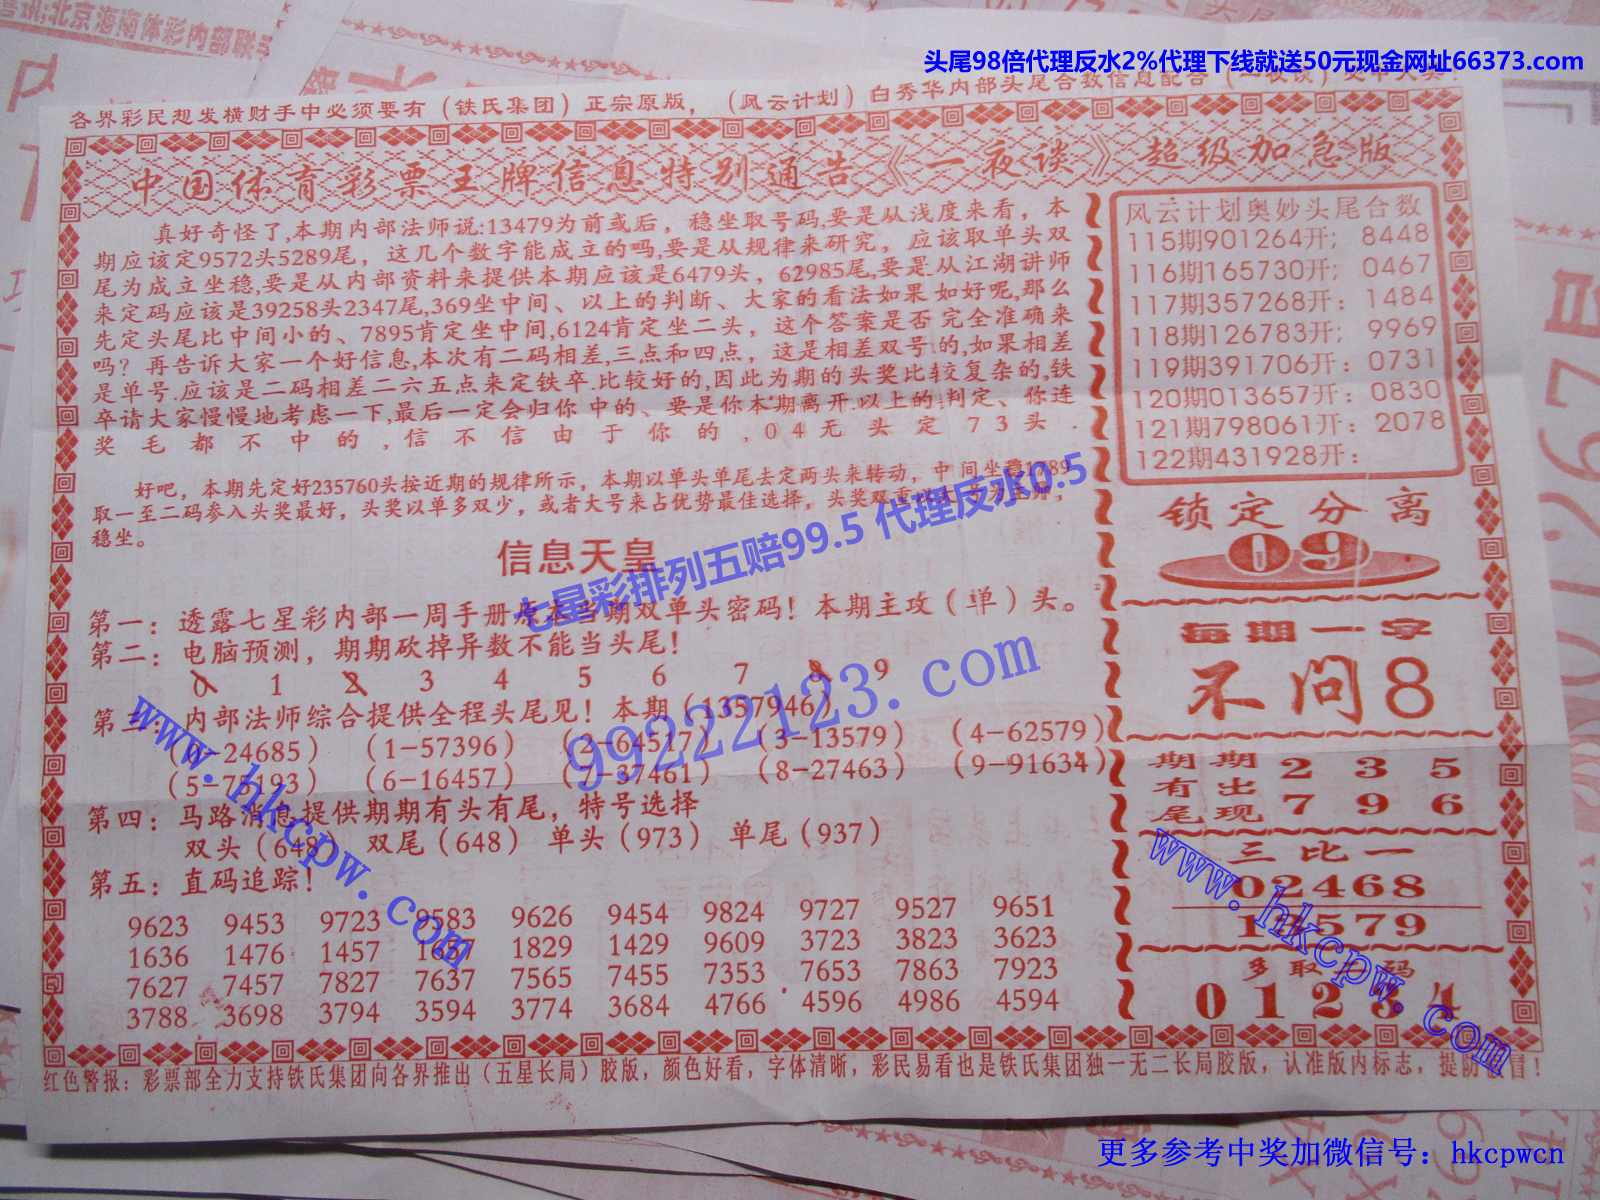 喜讯:北京海南体彩内部联
头尾98倍代理反水2%代理下线就送50元现金网址66373.com
各界彩民想发横财手中必须要有（铁氏集团）正宗原版，（风云计划）白秀华内部头尾合数信息配合（一夜谈）
中国体育彩票王牌信息特别通告《一夜谈》超级加急版
真好奇怪了,本期内部法师说:13479为前或后，稳坐取号码,要是从浅度来看，本
期应该定9572头5289尾，这几个数字能成立的吗,要是从规律来研究，应该取单头双
尾为成立坐稳,要是从内部资料来提供本期应该是6479头，62985尾,要是从江湖讲师
来定码应该是39258头2347尾,369坐中间、以上的判断、大家的看法如果如好呢,那么
先定头尾比中间小的、7895肯定坐中间,6124肯定坐二头，这个答案是否完全准确来
吗？再告诉大家一个好信息,本次有二码相差,三点和四点，这是相差双号的,如果相差
是单号.应该是二码相差二六五点来定铁卒.比较好的,因此为期的头奖比较复杂的,铁
卒请大家慢慢地考虑一下,最后一定会归你中的、要是你本期离开.以上的判定、你连
奖毛都不中的,信不信由于你的,04无头定73头.
好吧，本期先定好235760头按近期的规律所示，本期以单头单尾去定两头来转动，中间坐稳1789
取一至二码参入头奖最好，头奖以单多双少，或者大号来占优势最佳选择，头奖双重
稳坐。
信息天皇
七星彩排列五赔99.5 代理反水0.5
第一：透露七星彩内部一周手册原本当期双单头密码！本期主攻（单）头。
第二：电脑预测，期期砍掉异数不能当头尾！
0 1 2 3 4 5 6 7 8 9
第三：内部法师综合提供全程头尾见！本期（1357946）
（0-24685）（1-57396）（2-64517）（3-13579）（4-62579）
（5-75193）（6-16457）（7-37461）（8-27463）（9-91634）
第四：马路消息提供期期有头有尾，特号选择
双头（648） 双尾（648） 单头（973） 单尾（937）
第五：直码追踪！
9623 9453 9723 9583 9626 9454 9824 9727 9527 9651
1636 1476 1457 1637 1829 1429 9609 3723 3823 3623
7627 7457 7827 7637 7565 7455 7353 7653 7863 7923
3788 3698 3794 3594 3774 3684 4766 4596 4986 4594
风云计划奥妙头尾合数
115期901264开；8448
116期165730开；0467
117期357268开：1484
118期126783开；9969
119期391706开：0731
120期013657开：0830
121期798061开：2078
122期431928开：
锁定分离
09
每期一字
不问8
期期 2 3 5
有出
尾现 7 9 6
三比一
02468
13579
多取二码
01234
99222123.com
www.hkcpw.com
www.hkcpw.com
红色警报：彩票部全力支持铁氏集团向各界推出（五星长局）胶版，颜色好看，字体清晰，彩民易看也是铁氏集团独一无二长局胶版，认准版内标志，提防假冒！
更多参考中奖加微信号：hkcpwcn